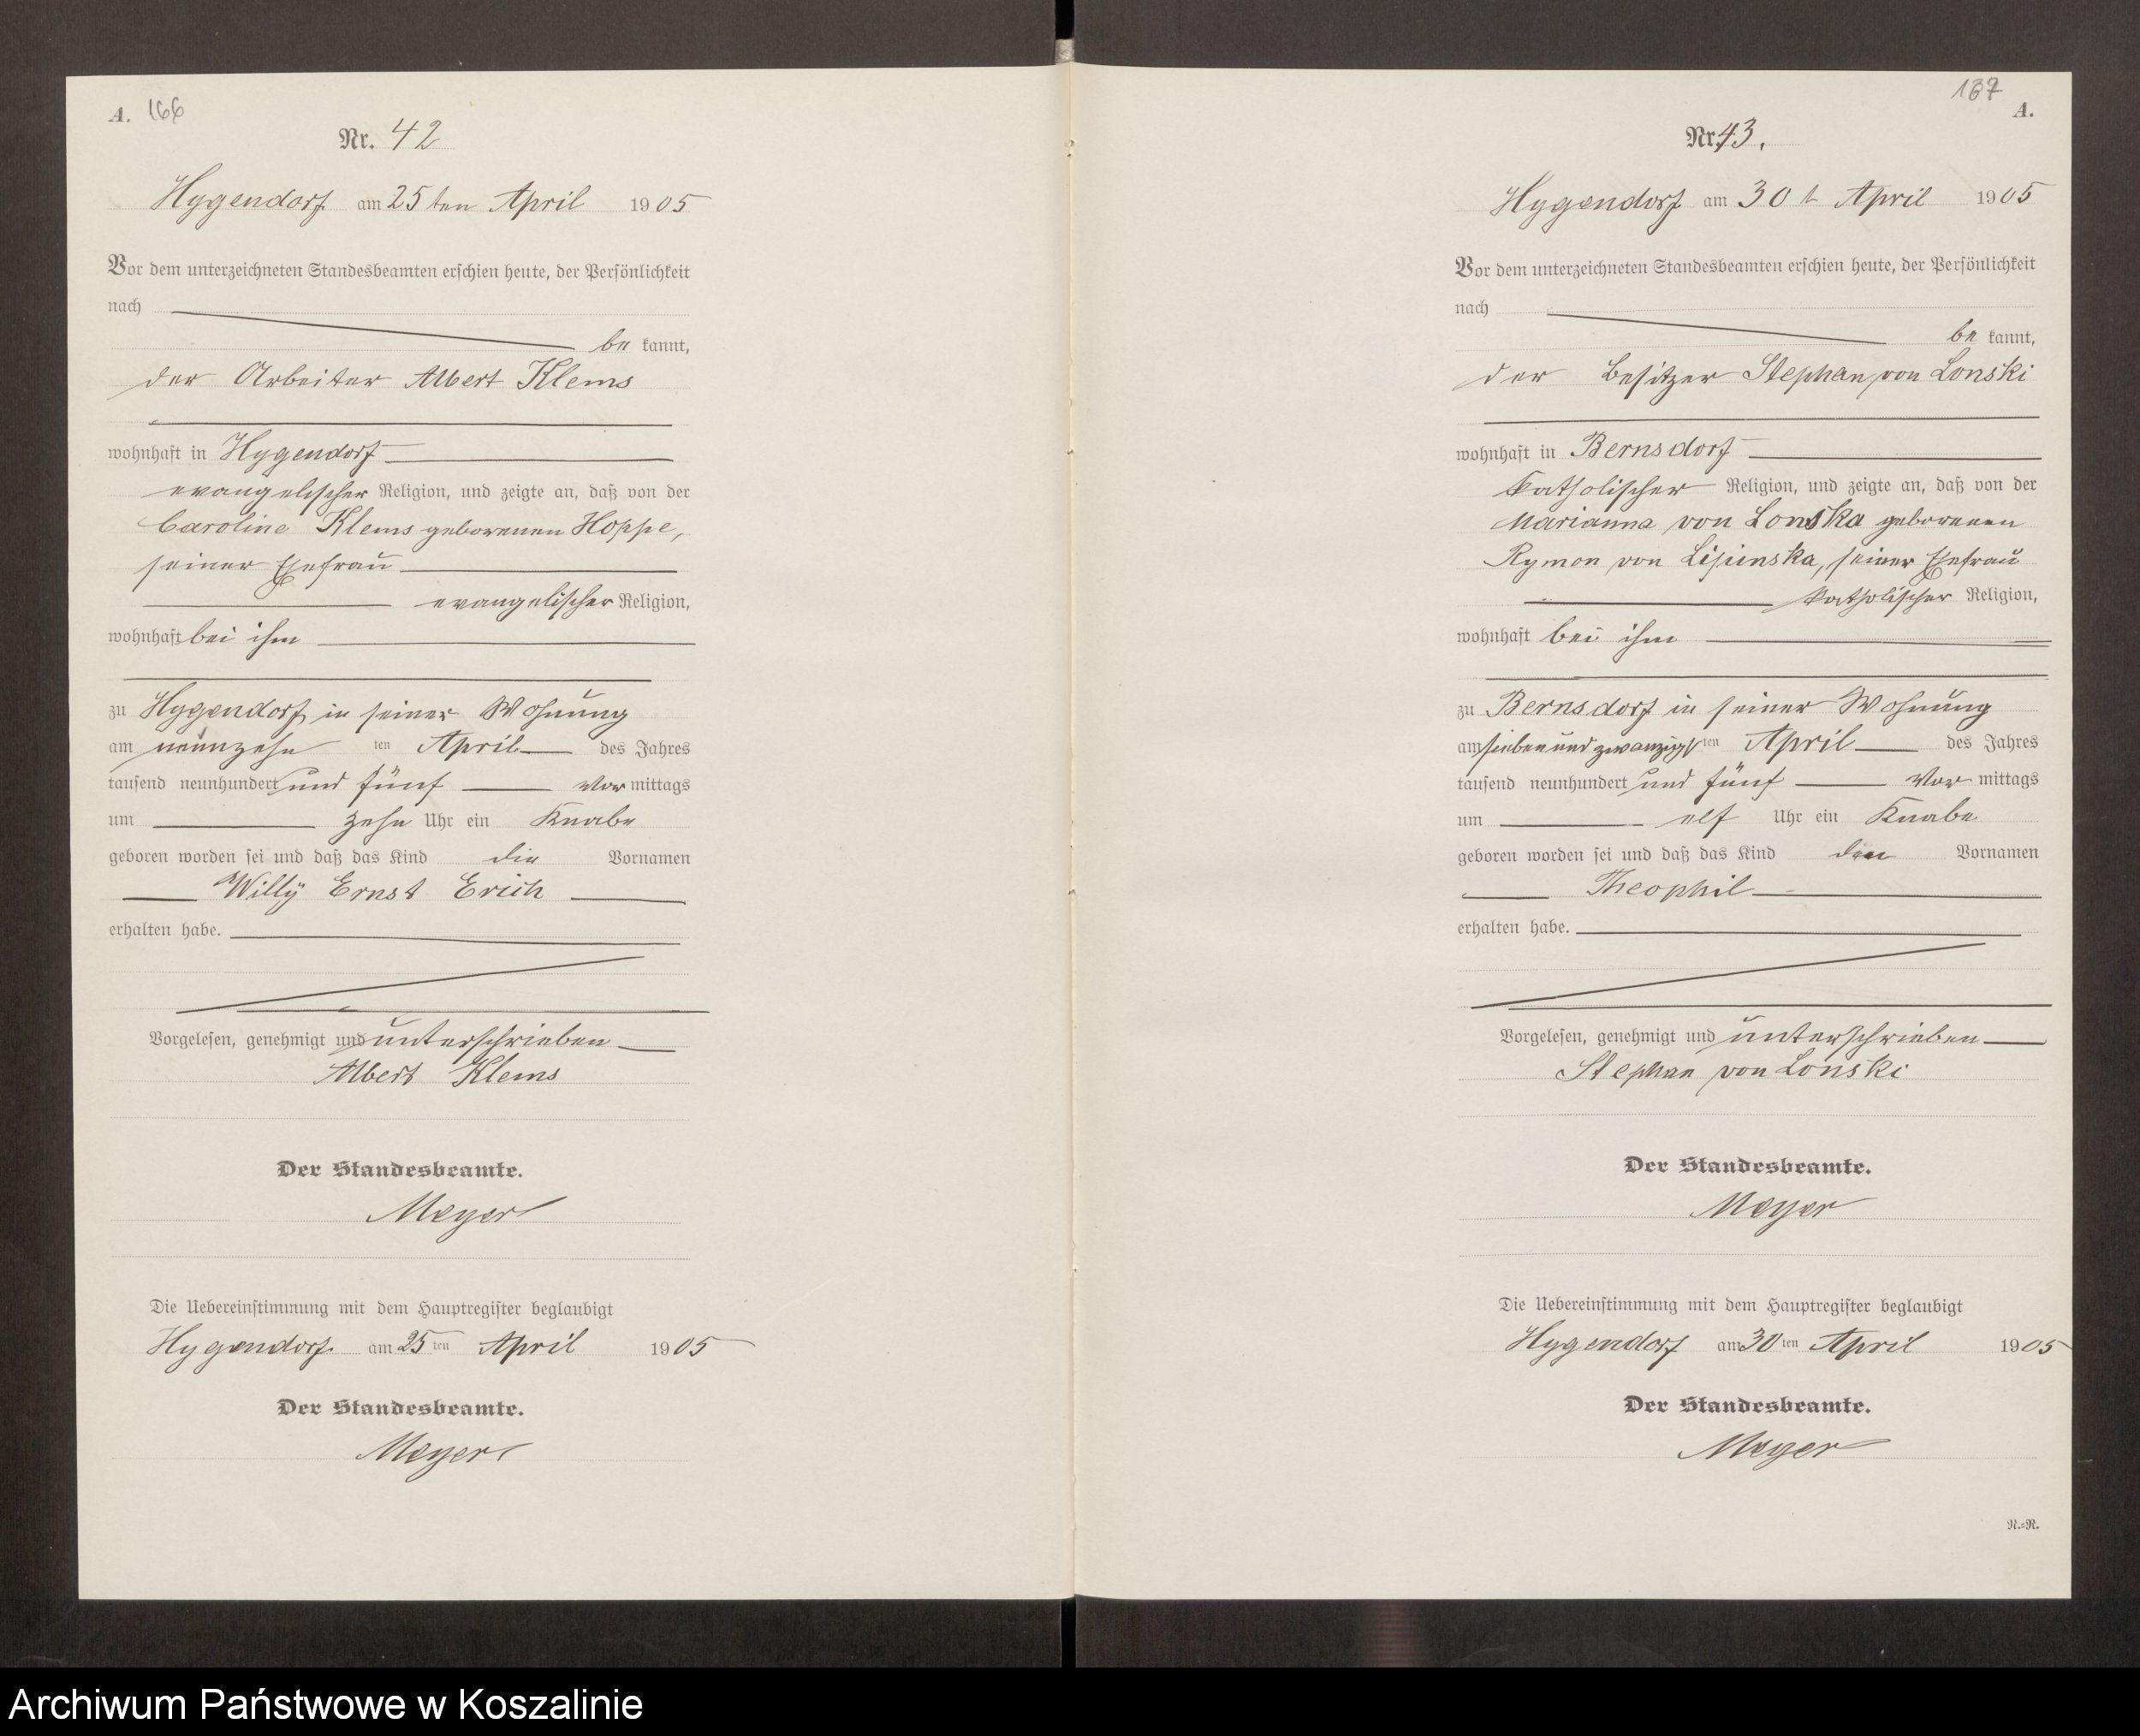 A. 166
Nr. 42
Hygendorf am 25 ten April 1905
Vor dem unterzeichneten Standesbeamten erschien heute, der Persönlichkeit
nach
be kannt,
der Arbeiter Albert Klems
wohnhaft in Hygendorf
evangelischer Religion, und zeigte an, daß von der
Caroline Klems geborenen Hoppe,
seiner Ehefrau
evangelischer Religion,
wohnhaft bei ihm
zu Hygendorf, in seiner Wohnung
am neunzehn ten April des Jahres
tausend neunhundert und fünf Vor mittags
um zehn Uhr ein Knabe
geboren worden sei und daß das Kind die Vornamen
Willy Ernst Erich
erhalten habe.
Vorgelesen, genehmigt und unterschrieben
Albert Klems
Der Standesbeamte.
Meyer
Die Uebereinstimmung mit dem Hauptregister beglaubigt
Hygendorf am 25 ten April 1905
Der Standesbeamte.
Meyer
167 A.
Nr. 43.
Hygendorf am 30 t April 1905
Vor dem unterzeichneten Standesbeamten erschien heute, der Persönlichkeit
nach
be kannt,
der Besitzer Stephan von Lonski
wohnhaft in Bernsdorf
katholischer Religion, und zeigte an, daß von der
Marianna von Lonska geborenen
Rymon von Lipinska, seiner Ehefrau
katholischer Religion,
wohnhaft bei ihm
zu Bernsdorf in seiner Wohnung
am siebenundzwanzigsten April des Jahres
tausend neunhundert und fünf Vor mittags
um elf Uhr ein Knabe
geboren worden sei und daß das Kind den Vornamen
Theophil
erhalten habe.
Vorgelesen, genehmigt und unterschrieben
Stephan von Lonski
Der Standesbeamte.
Meyer
Die Uebereinstimmung mit dem Hauptregister beglaubigt
Hygendorf am 30 ten April 1905
Der Standesbeamte.
Meyer
N.=R.
Archiwum Państwowe w Koszalinie